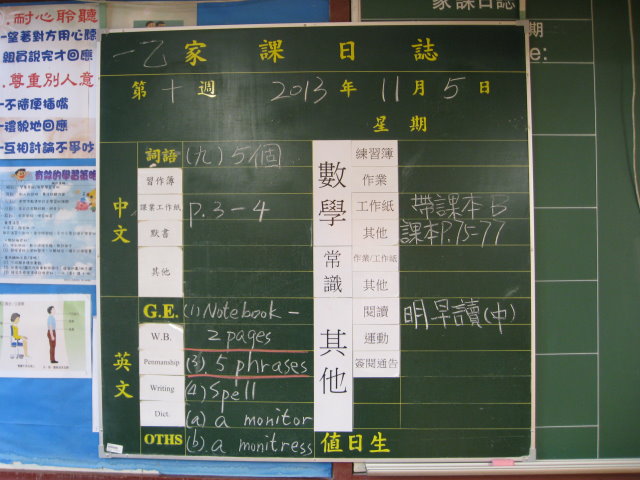 .耐心聆聽
一望著對方用心聽
組員說完才回應
.尊重別人意
一不隨便插嘴
一禮貌地回應
一互相討論不爭吵
有效的學習策略
家課日誌
期
一乙 家課日誌
第十週 2013年 11月5日
星期
中文
詞語 (九) 5個
習作簿
課業工作紙 p.3-4
默書
其他
英文
G.E. (1) Notebook -
W.B. 2 pages
Penmanship (3) 5 phrases
Writing (4) Spell
Dict. (a) a monitor
OTHS (b) a monitress
數學
練習簿
作業
工作紙 帶課本B
其他 課本P.75-77
常識
作業/工作紙
其他
其他
閱讀 明早讀(中)
運動
簽閱通告
值日生